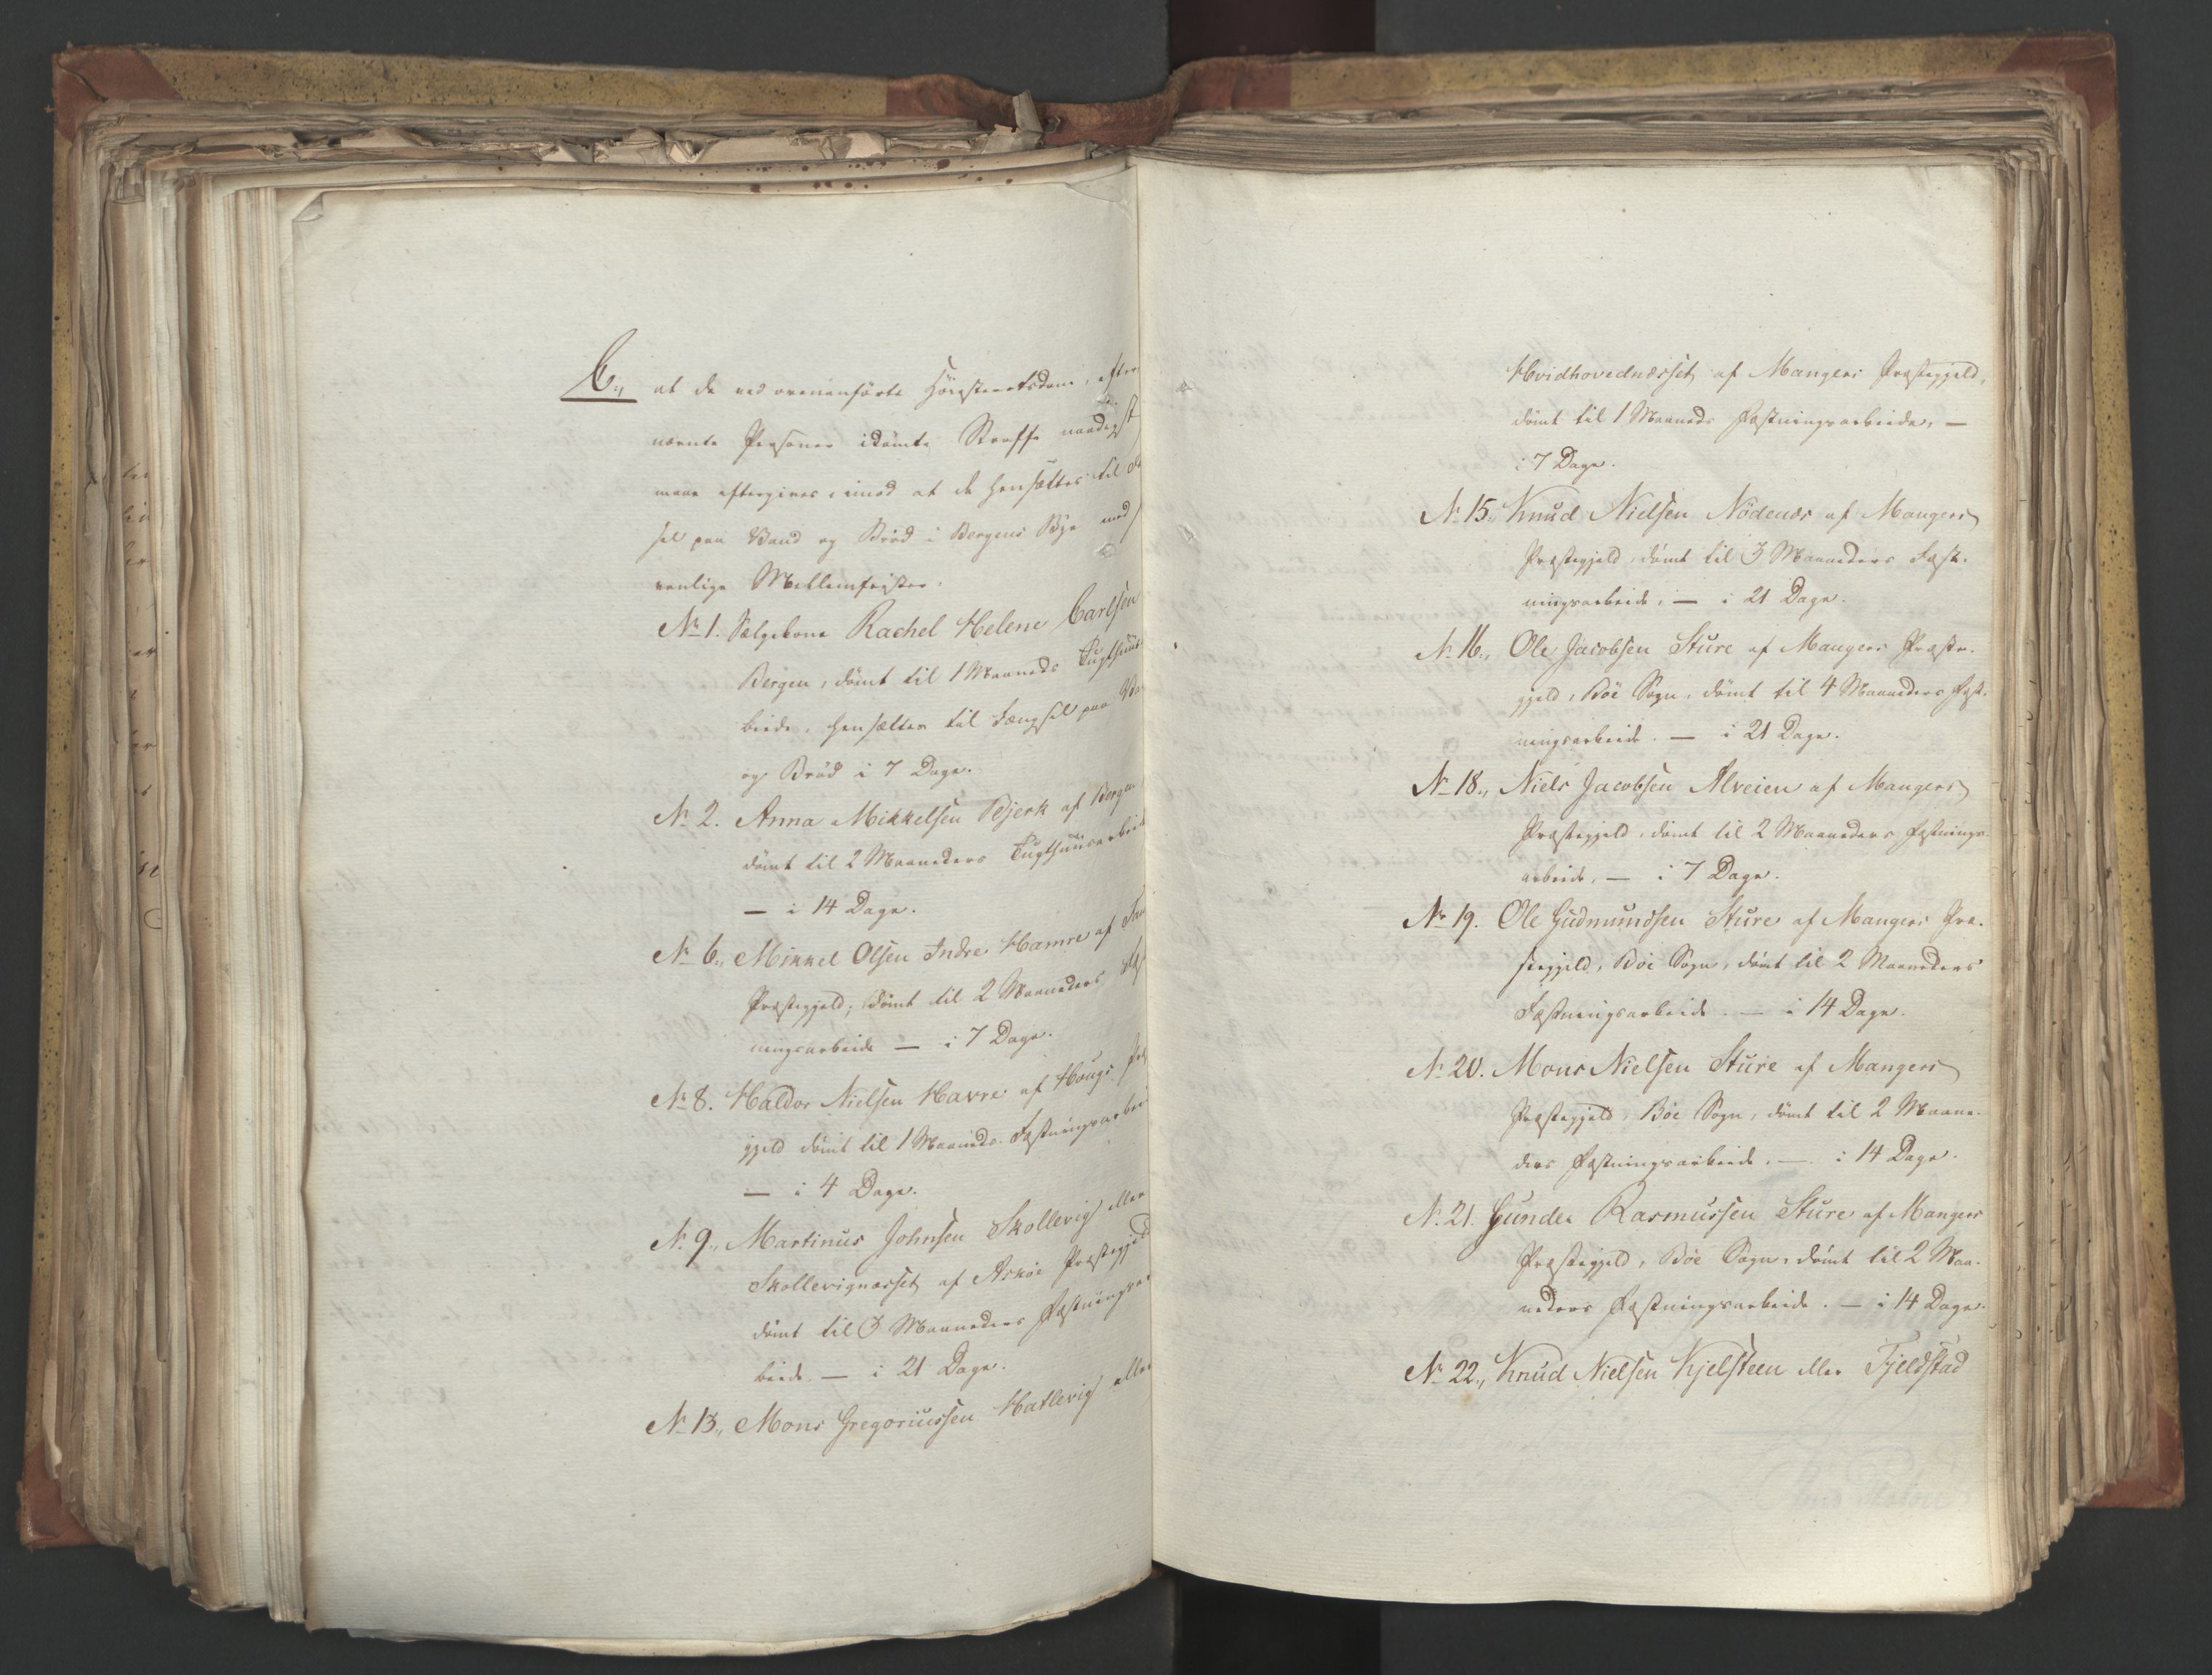 C., at de ved ovenanførte Høiesteretsdom, efter
nævnte Personer idømte Straffe naadigst
maae eftergives, imod at de hensættes til
sel paa Vand og Brød i Bergens Bye med
vanlige Mellemfrister.
No 1. Sælgekone Rachel Helene Carlsen
Bergen, dømt til 1 Maaneds Tugthuus
beide, hensættes til Fængsel paa
og Brød i 7 Dage.
No 2. Anna Mikkelsen Bjerk af Bergen
dømt til 2 Maaneders Tugthuusarbeid
— i 14 Dage.
No 6., Mikkel Olsen Indre Hamre af
Præstegjeld, dømt til 2 Maaneders
ningsarbeide — i 7 Dage.
No 8. Haldor Nielsen Havre af Hougs
gjeld dømt til 1 Maaneds Fæstningsarbei
— i 4 Dage.
No 9., Martinus Johnsen Skollevig eller
Skollevignæsset af Askøe Præstegjeld
dømt til 3 Maaneders Fæstningsar
beide — i 21 Dage.
No 13., Mons Gregoriussen Hatlevig eller
Hvidhovednæsset af Mangers Præstegjeld,
dømt til 1 Maaneds Fæstningsarbeide, —
i 7 Dage.
No 15., Knud Nielsen Nödenæs af Mangers
Præstegjeld, dømt til 3 Maaneders Fæst-
ningsarbeide, — i 21 Dage.
No 16., Ole Jacobsen Sture af Mangers Præste-
gjeld, Böe Sogn, dømt til 4 Maaneders Fæst-
ningsarbeide. — i 21 Dage.
No 18., Niels Jacobsen Alveien af Mangers
Præstegjeld, dømt til 2 Maaneders Fæstnings-
arbeide, — i 7 Dage.
No 19. Ole Gudmundsen Sture af Mangers Præ-
stegjeld, Böe Sogn, dømt til 2 Maaneders
Fæstningsarbeide. — i 14 Dage.
No 20. Mons Nielsen Sture af Mangers
Præstegjeld, Böe Sogn, dømt til 2 Maane-
ders Fæstningsarbeide. — i 14 Dage.
No 21. Gunder Rasmussen Sture af Mangers
Præstegjeld, Böe Sogn, dømt til 2 Maa-
neders Fæstningsarbeide. — i 14 Dage.
No 22., Knud Nielsen Kjelsteen eller Fjeldstad